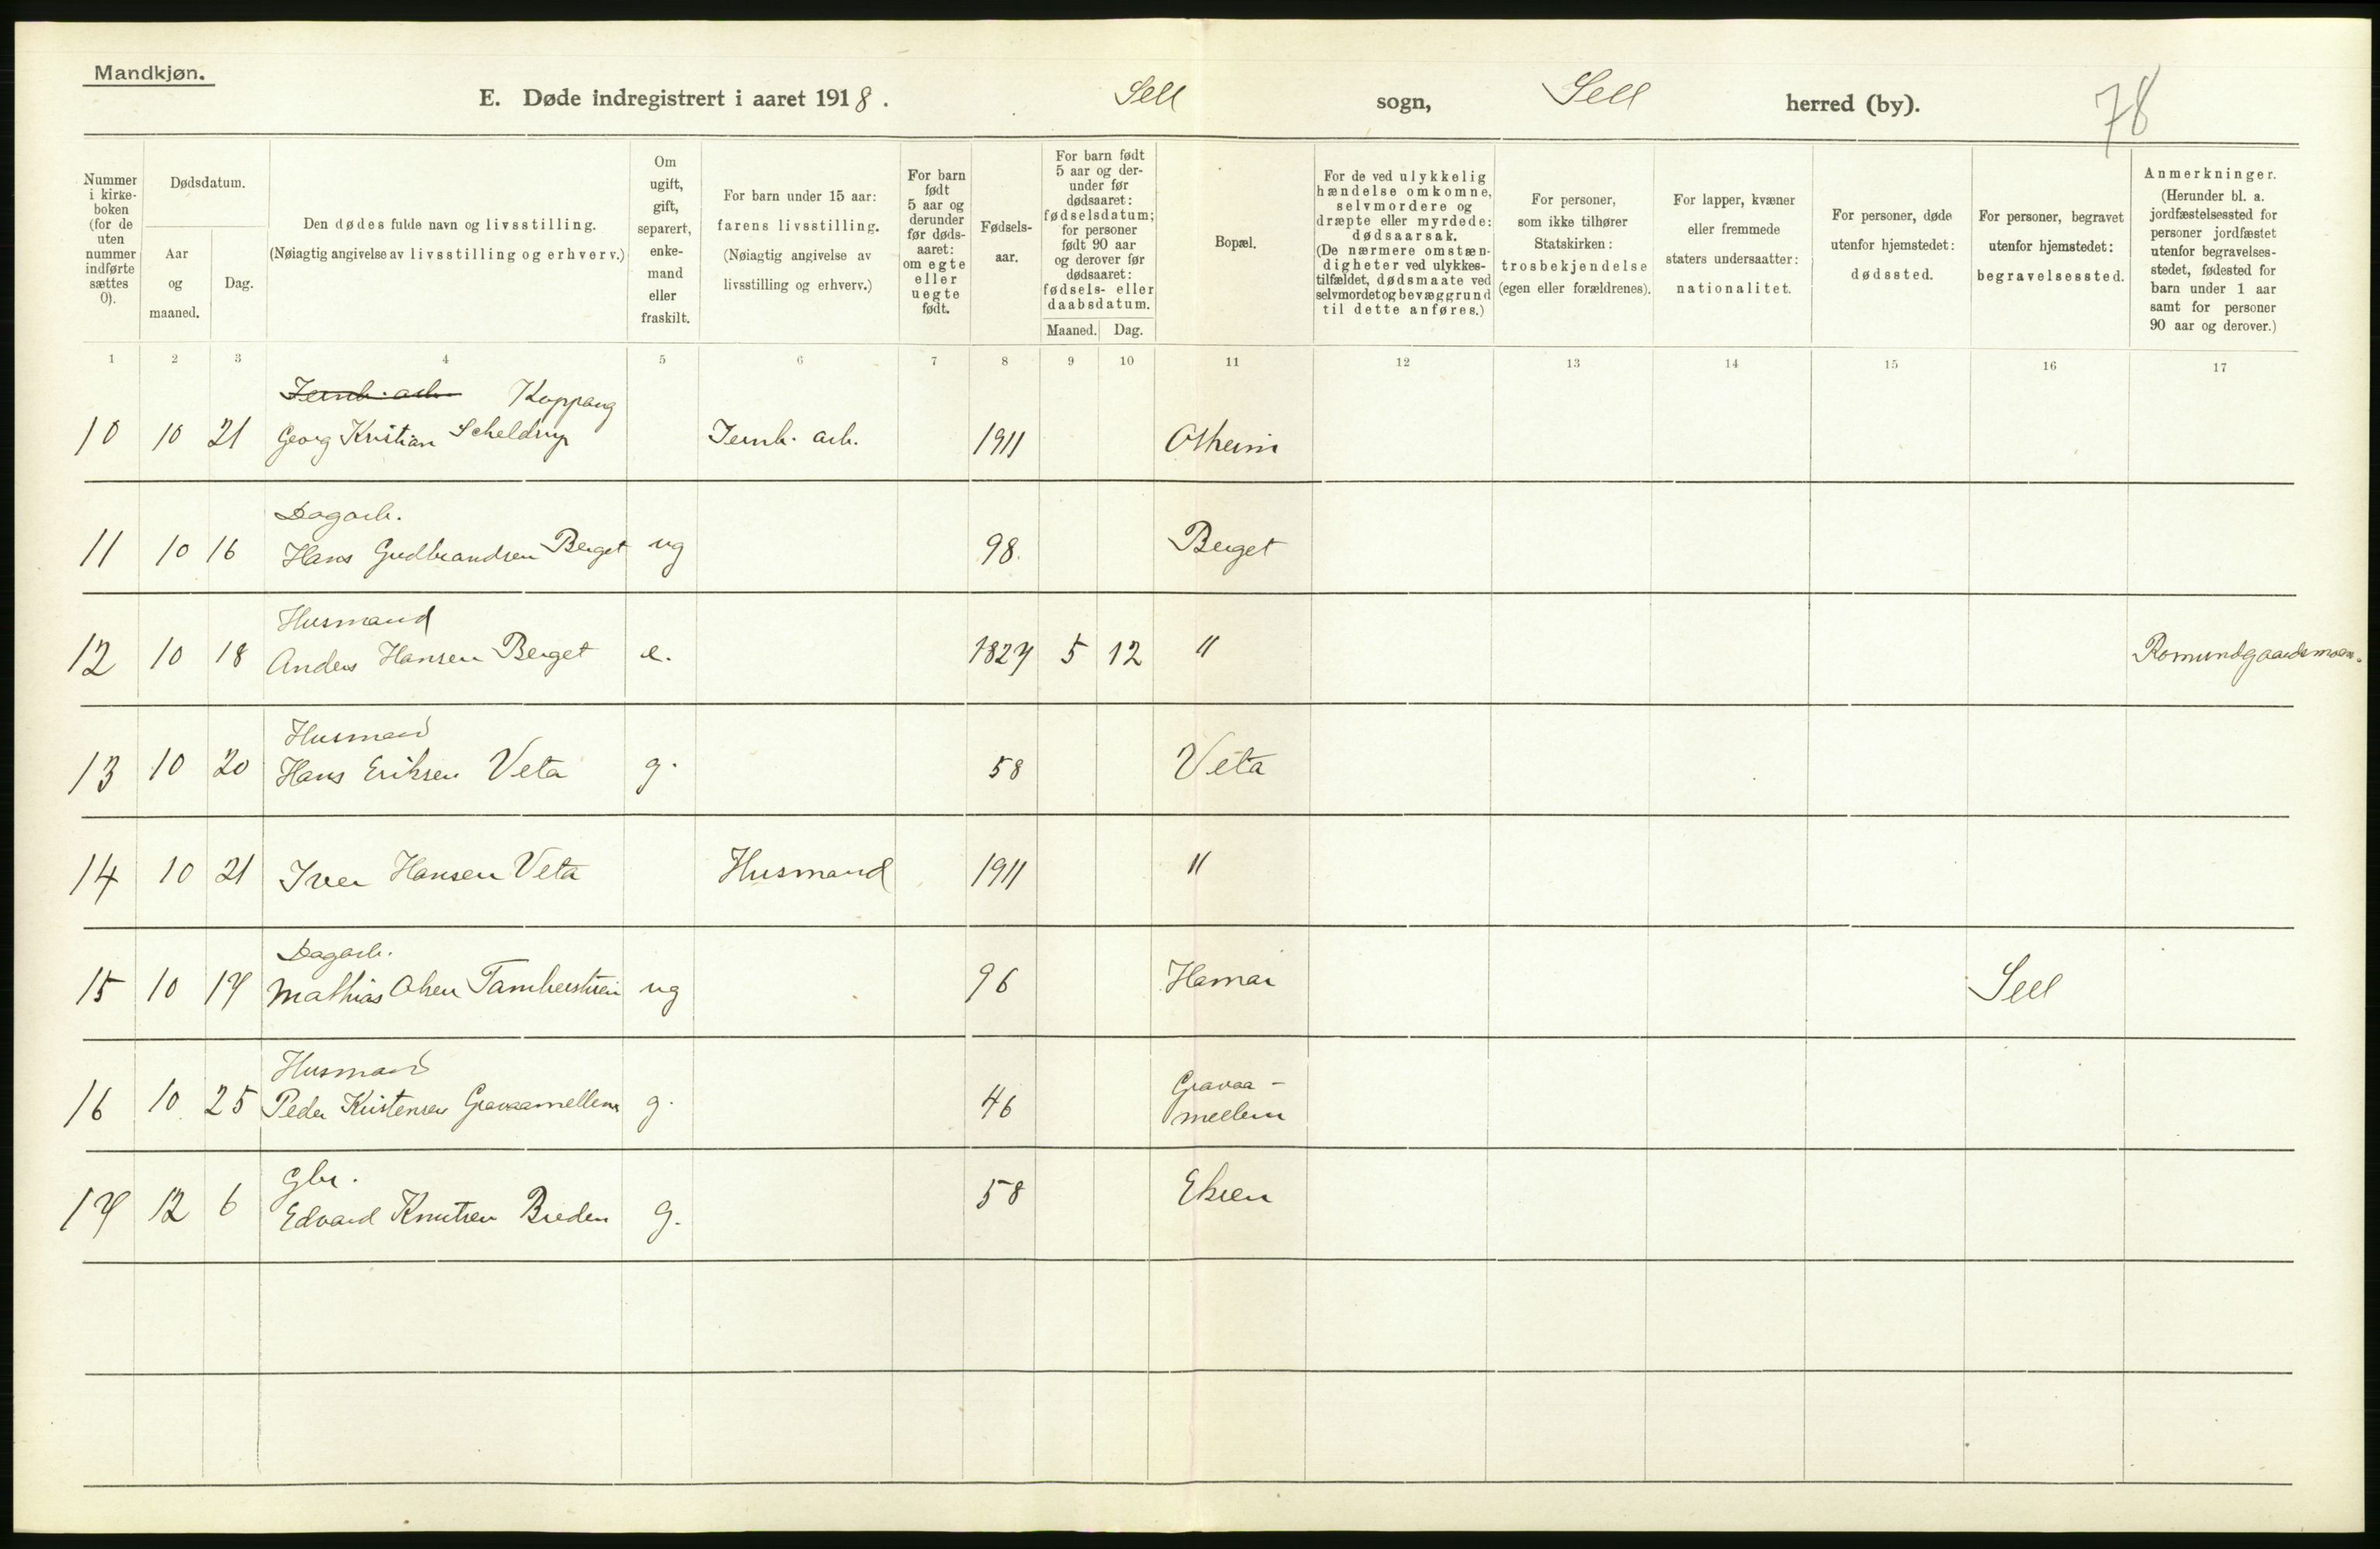 Mandkjøn.
E. Døde indregistrert i aaret 1918. Sell sogn, Sell herred (by). 78
Nummer i kirke- boken (for de uten nummer indførte sættes 0).
Dødsdatum.
Aar og maaned.
Dag.
Den dødes fulde navn og livsstilling.
(Nøiagtig angivelse av livsstilling og erhverv.)
Om ugift, gift, separert, enke- mand eller fraskilt.
For barn under 15 aar: farens livsstilling. (Nøiagtig angivelse av livsstilling og erhverv.)
For barn født 5 aar og derunder før døds- aaret: om egte eller uegte født.
Fødsels- aar.
For barn født 5 aar og der- under før dødsaaret: fødselsdatum; for personer født 90 aar og derover før dødsaaret: fødsels- eller daabsdatum.
Maaned. Dag.
Bopæl.
For de ved ulykkelig hændelse omkomne, selvmordere og dræpte eller myrdede: dødsaarsak. (De nærmere omstæn- digheter ved ulykkes- tilfældet, dødsmaate ved selvmordet og bevæggrund til dette anføres.)
For personer, som ikke tilhører Statskirken: trosbekjendelse (egen eller forældrenes).
For lapper, kvæner eller fremmede staters undersaatter: nationalitet.
For personer, døde utenfor hjemstedet: dødssted.
For personer, begravet utenfor hjemstedet: begravelsessted.
Anmerkninger. (Herunder bl. a. jordfæstelsessted for personer jordfæstet utenfor begravelses- stedet, fødested for barn under 1 aar samt for personer 90 aar og derover.)
1 2 3 4 5 6 7 8 9 10 11 12 13 14 15 16 17
Jernb. arb. Koppang
10 10 21 Georg Kristian Scheldrup Jernb. arb. 1911 Otheim
Dagarb.
11 10 16 Hans Gudbrandsen Berget ug 98. Berget
Husmand
12 10 18 Anders Hansen Berget e. 1827 5 12 " Romundgaardsmoen.
Husmand
13 10 20 Hans Eriksen Veta g. 58 Veta
14 10 21 Iver Hansen Veta Husmand 1911 "
Dagarb.
15 10 17 Mathias Olsen ug 96 Hamar Sell
Husmand
16 10 25 Peder Kristensen Gravaamellem g. 46 Gravaa-
mellem
Gbr.
17 12 6 Edvard Knutsen Breden g. 58 Ekren